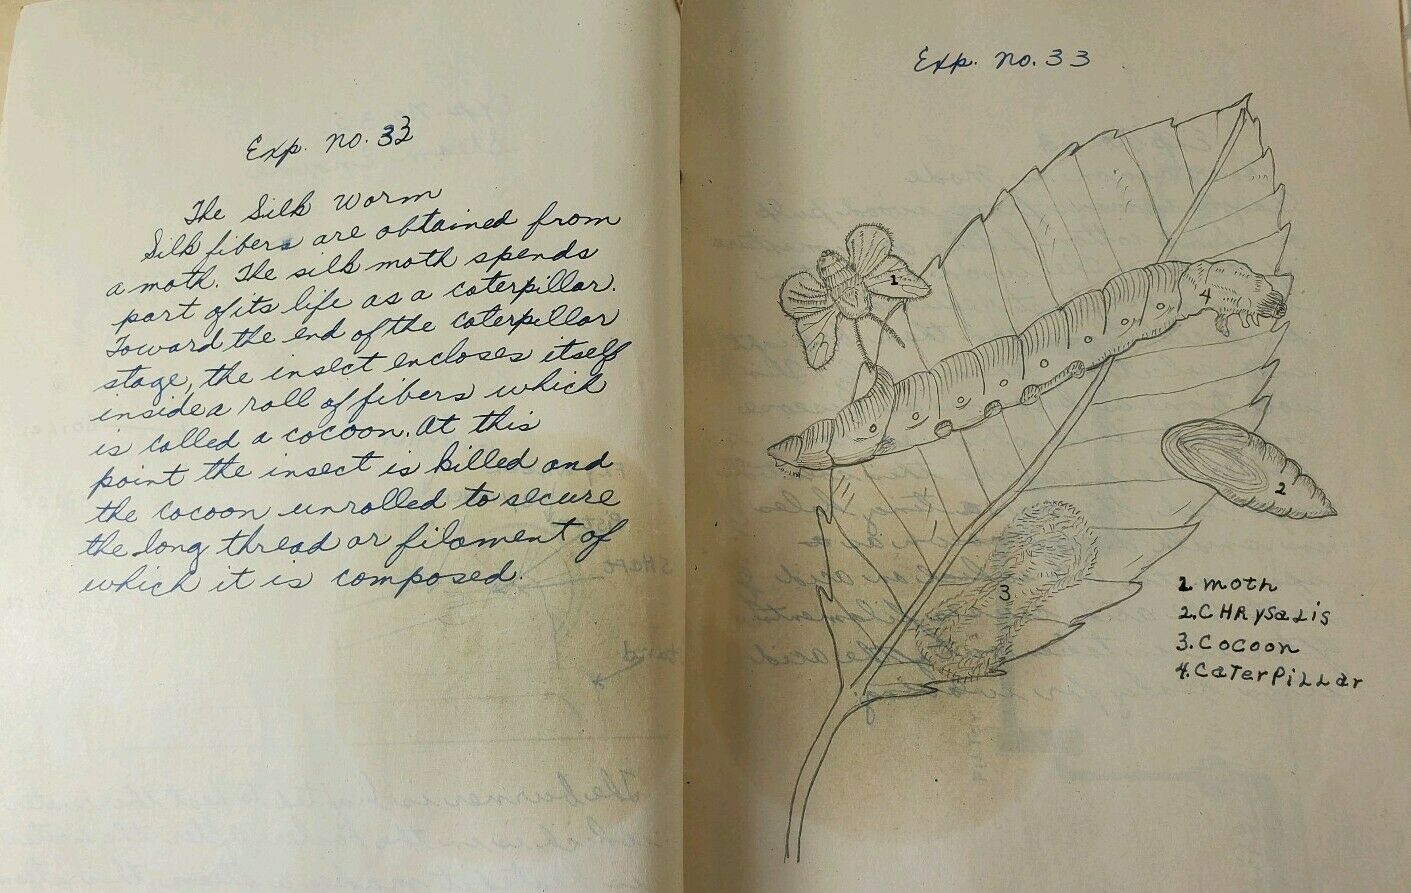 Exp. no. 33
The Silk Worm
Silk fibers are obtained from
a moth. The silk moth spends
part of its life as a caterpillar.
Toward the end of the caterpillar
stage, the insect encloses itself
inside a roll of fibers which
is called a cocoon. At this
point the insect is killed and
the cocoon unrolled to secure
the long thread or filament of
which it is composed.
Exp. no. 33
1
4
2
3
1. moth
2. CHRysaLis
3. Cocoon
4. CaterPiLLar